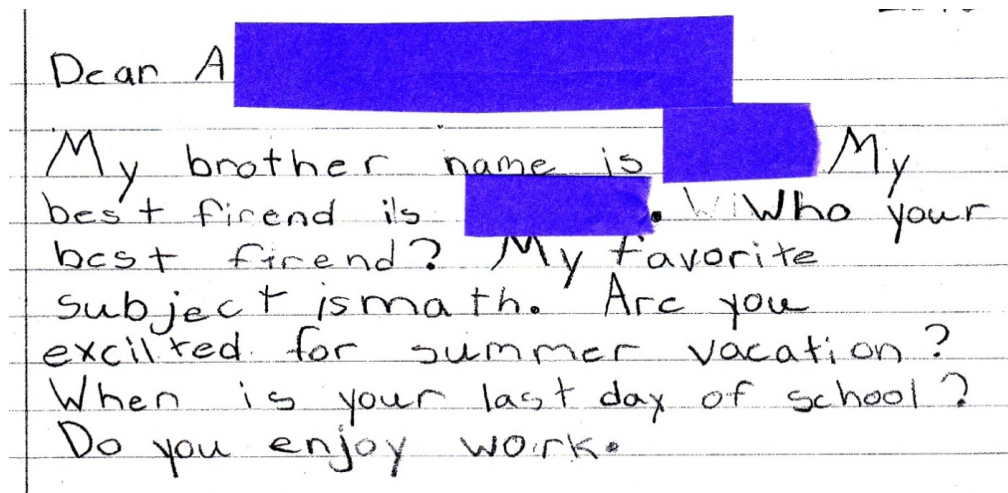 Dear A
My brother name is My
best firend is . Who your
best firend? My favorite
subject is math. Are you
excilted for summer vacation?
When is your last day of school?
Do you enjoy work.